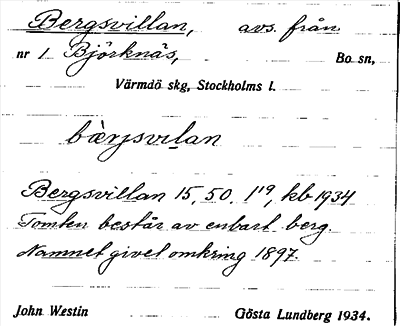 Bergsvillan, avs. från
nr 1 Björknäs, Bo sn,
Värmdö skg, Stockholms l.
bæ̀rjsvilan
Bergsvillan 15, 50, 1¹⁹, kb 1934
Tomten består av enbart berg.
Namnet givet omkring 1897.
John Westin Gösta Lundberg 1934.